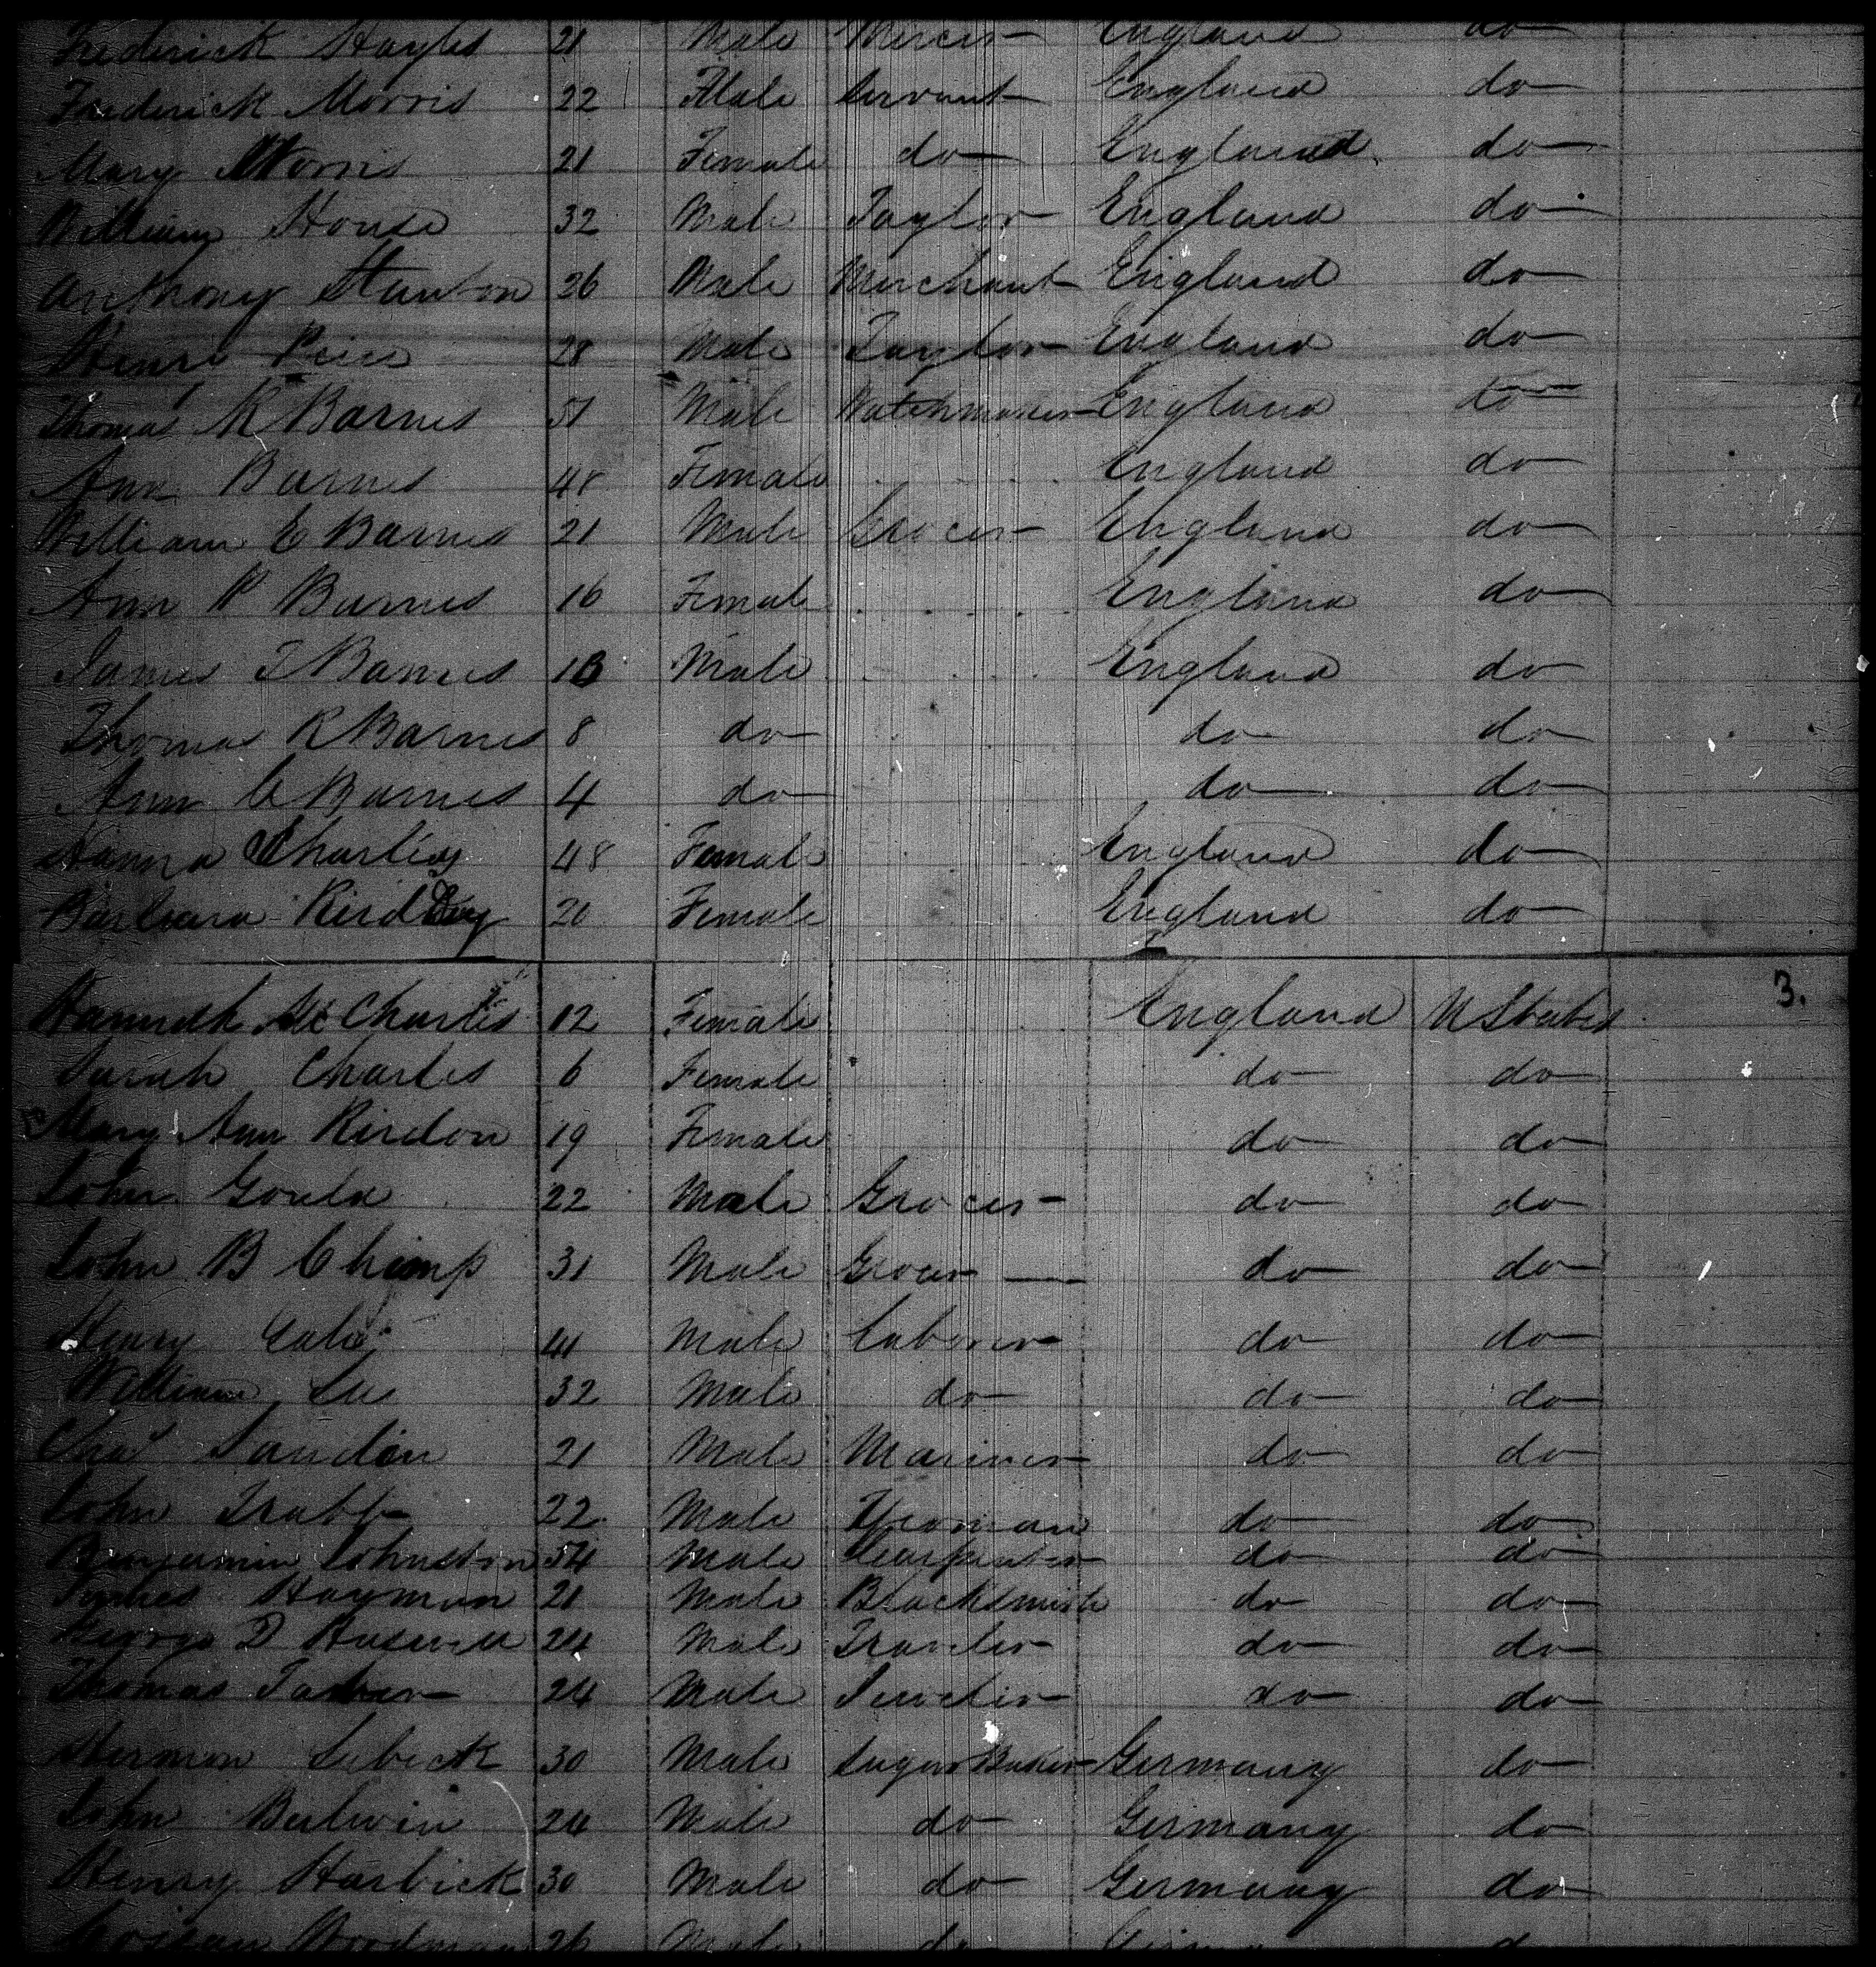 Frederick Hayles 21 Male Mercer England do
Frederick Morris 22 Male Servant England do
Mary Morris 21 Female do England do
William House 32 Male Taylor England do
Anthony Stanton 26 Male Merchant England do
Henry Price 28 Male Taylor England do
Thomas R Barnes 51 Male Watchmaker England do
Ann Barnes 48 Female England do
William E Barnes 21 Male Grocer England do
Ann P Barnes 16 Female England do
James T Barnes 13 Male England do
Thomas R Barnes 8 do do do
Ann C Barnes 4 do do do
Hanna Charles 48 Female England do
Barbara 20 Female England do
3.
Hannah M Charles 12 Female England U States
Sarah Charles 6 Female do do
Mary Ann Rirdon 19 Female do do
John Gould 22 Male Grocer do do
John B Champ 31 Male Grocer do do
Henry Cale 41 Male Laborer do do
William Lee 32 Male do do do
Chas Sandon 21 Male Mariner do do
John Trabb 22 Male Yeoman do do
Benjamin Johnston 34 Male Carpenter do do
James Hayman 21 Male Blacksmith do do
George D 24 Male do do
Thomas 24 Male Jeweler do do
Herman Lubeck 30 Male Sugar Baker Germany do
John 24 Male do Germany do
Henry Harbick 30 Male do Germany do
26 Male do do